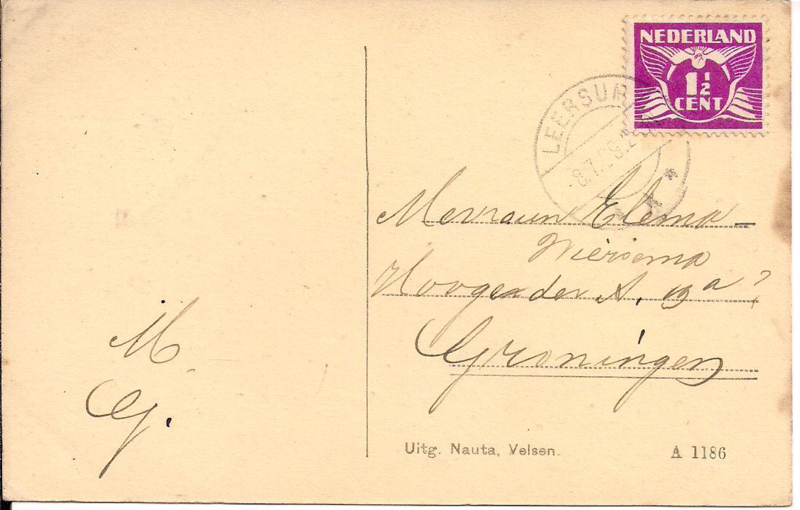 NEDERLAND
1½
CENT
LEERSUM
-8.7.29.2
Mevrouw Elema-
Wiersema
A.
Groningen
M
G.
Uitg. Nauta, Velsen.
A 1186